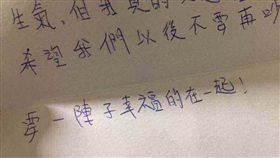 生氣，但我真的
希望我們以後不要再吵
要一陣子幸福的在一起！